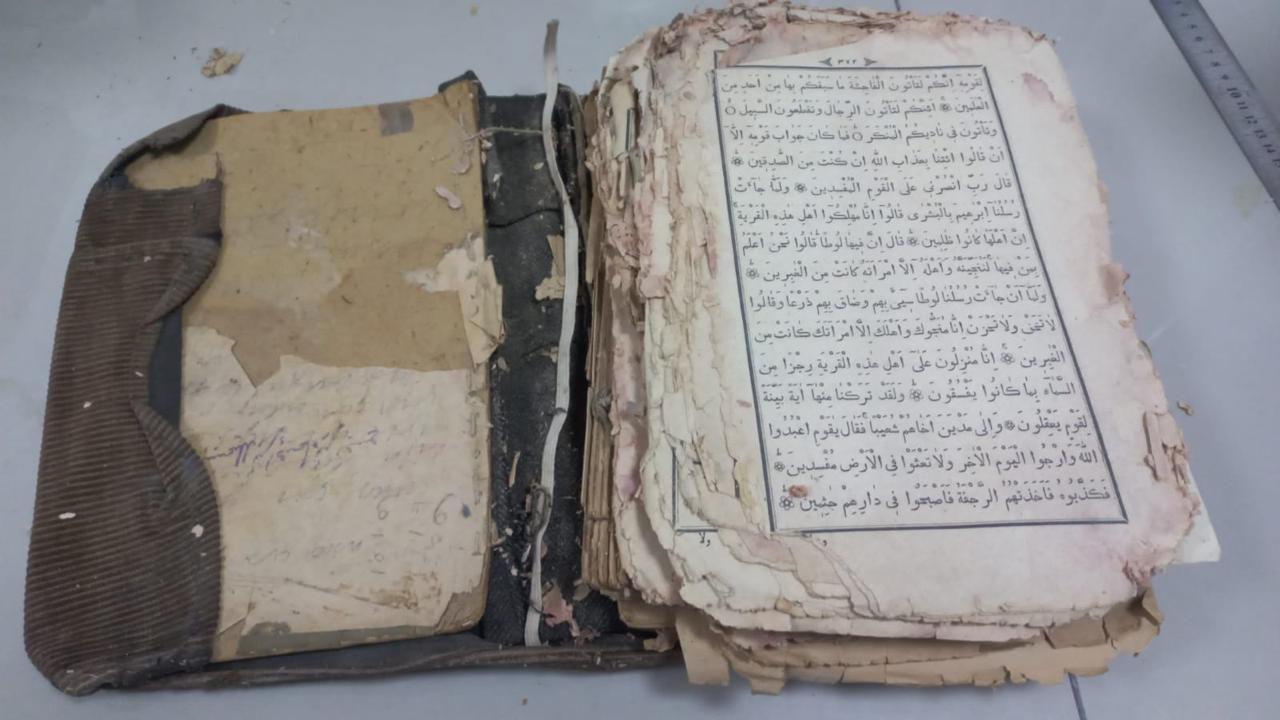 ٣٧٢
لِقَوْمِهٖٓ اِنَّكُمْ لَتَاْتُونَ الْفَاحِشَةَ مَا سَبَقَكُمْ بِهَا مِنْ اَحَدٍ مِنَ
الْعٰلَمٖينَ ۞ اَئِنَّكُمْ لَتَاْتُونَ الرِّجَالَ وَتَقْطَعُونَ السَّبٖيلَ ○
وَتَاْتُونَ فٖى نَادٖيكُمُ الْمُنْكَرَ ○ فَمَا كَانَ جَوَابَ قَوْمِهٖٓ اِلَّٓا
اَنْ قَالُوا ائْتِنَا بِعَذَابِ اللّٰهِ اِنْ كُنْتَ مِنَ الصَّادِقٖينَ ۞
قَالَ رَبِّ انْصُرْنٖى عَلَى الْقَوْمِ الْمُفْسِدٖينَ ۞ وَلَمَّا جَٓاءَتْ
رُسُلُنَٓا اِبْرٰهٖيمَ بِالْبُشْرٰى قَالُٓوا اِنَّا مُهْلِكُٓوا اَهْلِ هٰذِهِ الْقَرْيَةِ
اِنَّ اَهْلَهَا كَانُوا ظَالِمٖينَ ۞ قَالَ اِنَّ فٖيهَا لُوطًا قَالُوا نَحْنُ اَعْلَمُ
بِمَنْ فٖيهَا لَنُنَجِّيَنَّهُ وَاَهْلَهُٓ اِلَّا امْرَاَتَهُ كَانَتْ مِنَ الْغَابِرٖينَ ۞
وَلَمَّٓا اَنْ جَٓاءَتْ رُسُلُنَا لُوطًا سٖٓىءَ بِهِمْ وَضَاقَ بِهِمْ ذَرْعًا وَقَالُوا
لَا تَخَفْ وَلَا تَحْزَنْ اِنَّا مُنَجُّوكَ وَاَهْلَكَ اِلَّا امْرَاَتَكَ كَانَتْ مِنَ
الْغَابِرٖينَ ۞ اِنَّا مُنْزِلُونَ عَلٰٓى اَهْلِ هٰذِهِ الْقَرْيَةِ رِجْزًا مِنَ
السَّمَٓاءِ بِمَا كَانُوا يَفْسُقُونَ ۞ وَلَقَدْ تَرَكْنَا مِنْهَٓا اٰيَةً بَيِّنَةً
لِقَوْمٍ يَعْقِلُونَ ۞ وَاِلٰى مَدْيَنَ اَخَاهُمْ شُعَيْبًا فَقَالَ يَا قَوْمِ اعْبُدُوا
اللّٰهَ وَارْجُوا الْيَوْمَ الْاٰخِرَ وَلَا تَعْثَوْا فِى الْاَرْضِ مُفْسِدٖينَ ۞
فَكَذَّبُوهُ فَاَخَذَتْهُمُ الرَّجْفَةُ فَاَصْبَحُوا فٖى دَارِهِمْ جَاثِمٖينَ ۞
ولا